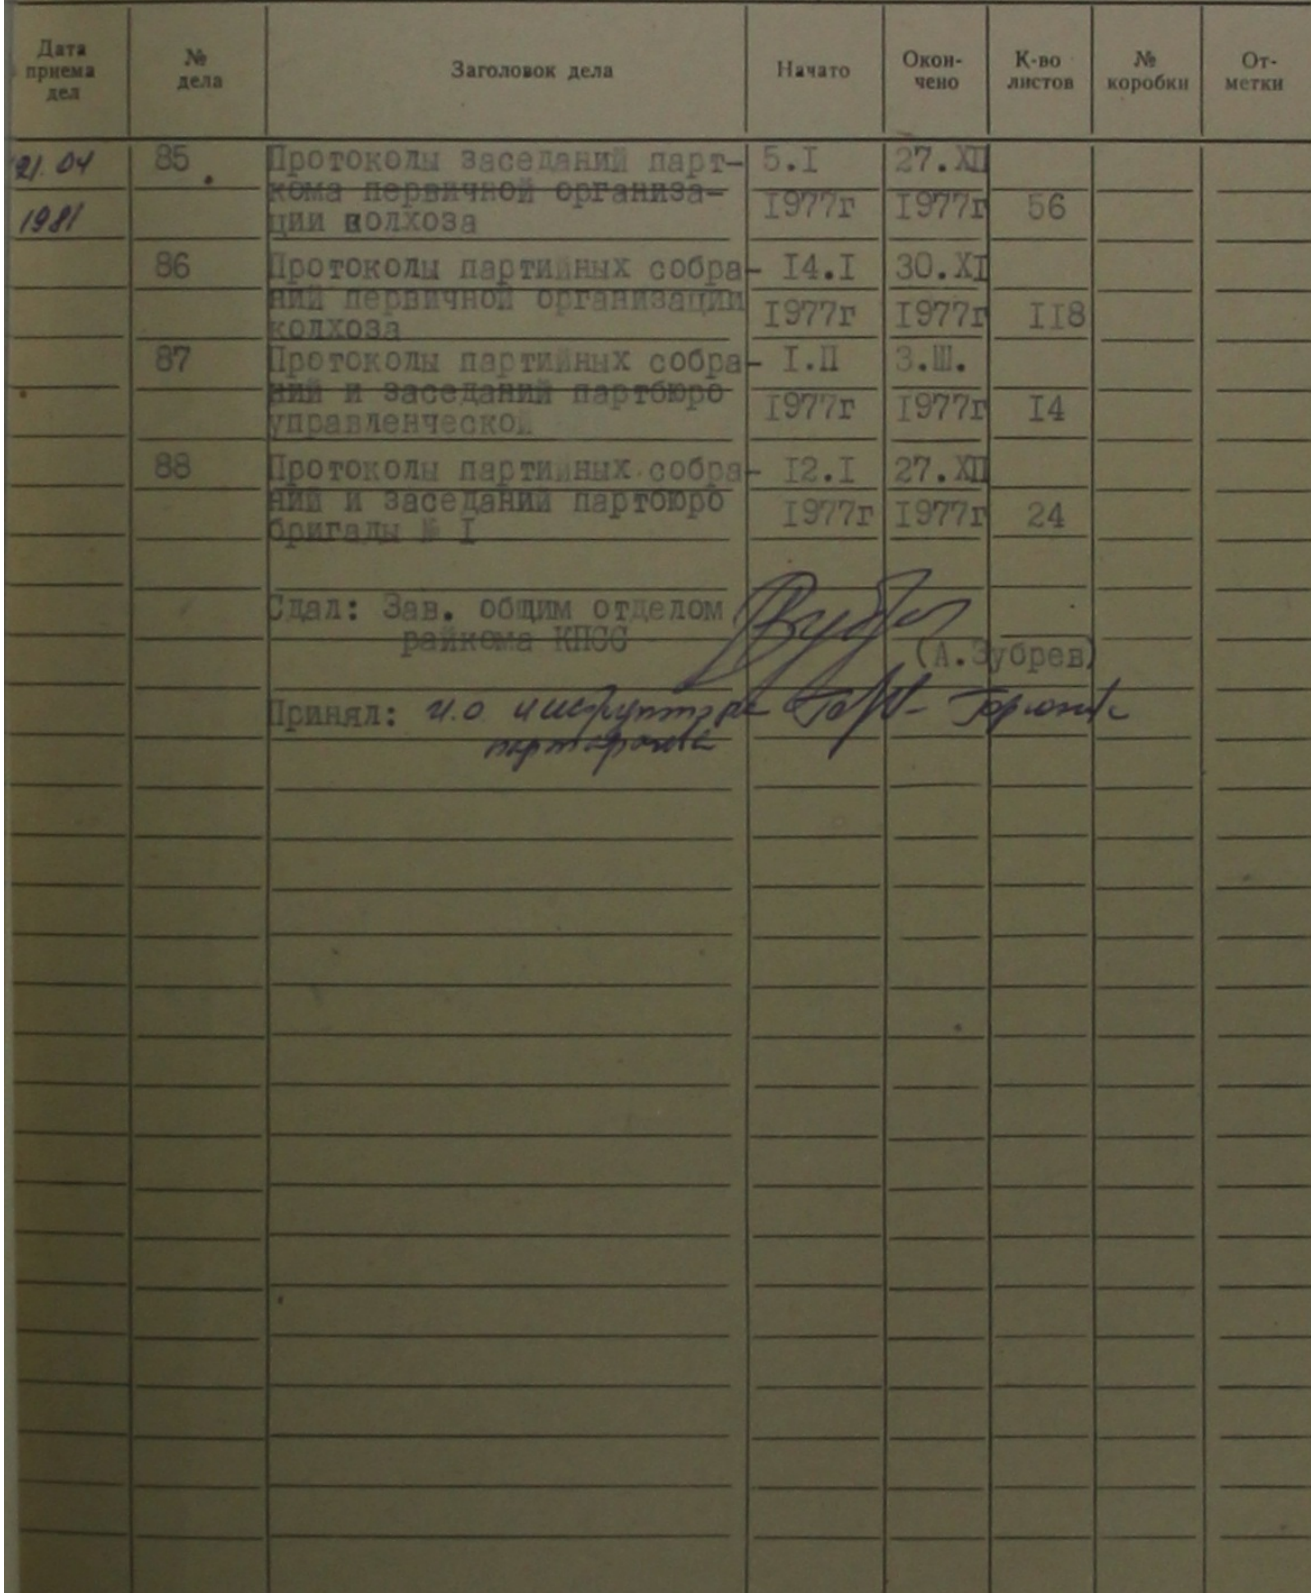 Дата приема дел № дела Заголовок дела Начато Окон-чено К-во листов № коробки От-метки
21.04 85 Протоколы заседаний парт- 5.I 27.XII
кома первичной организа-
1981 ции колхоза 1977г 1977г 56
86 Протоколы партийных собра- 14.I 30.XI
ний первичной организации
колхоза 1977г 1977г 118
87 Протоколы партийных собра- I.II 3.Ш.
ний и заседаний партбюро
управленческой 1977г 1977г 14
88 Протоколы партийных собра- 12.I 27.XII
ний и заседаний партбюро
бригады № I 1977г 1977г 24
Сдал: Зав. общим отделом
райкома КПСС (А.Зубрев)
Принял: и.о инструктора
партархива